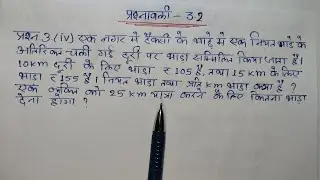 प्रश्नावली - 3.2
प्रश्न 3.(iv) एक नगर में टैक्सी के भाड़े में एक नियत भाड़े के
अतिरिक्त चली गई दूरी पर भाड़ा सम्मिलित किया जाता है।
10km दूरी के लिए भाड़ा ₹ 105 है, तथा 15 km के लिए
भाड़ा ₹ 155 है। नियत भाड़ा तथा प्रति km भाड़ा क्या है ?
एक व्यक्ति को 25 km यात्रा करने के लिए कितना भाड़ा
देना होगा ?